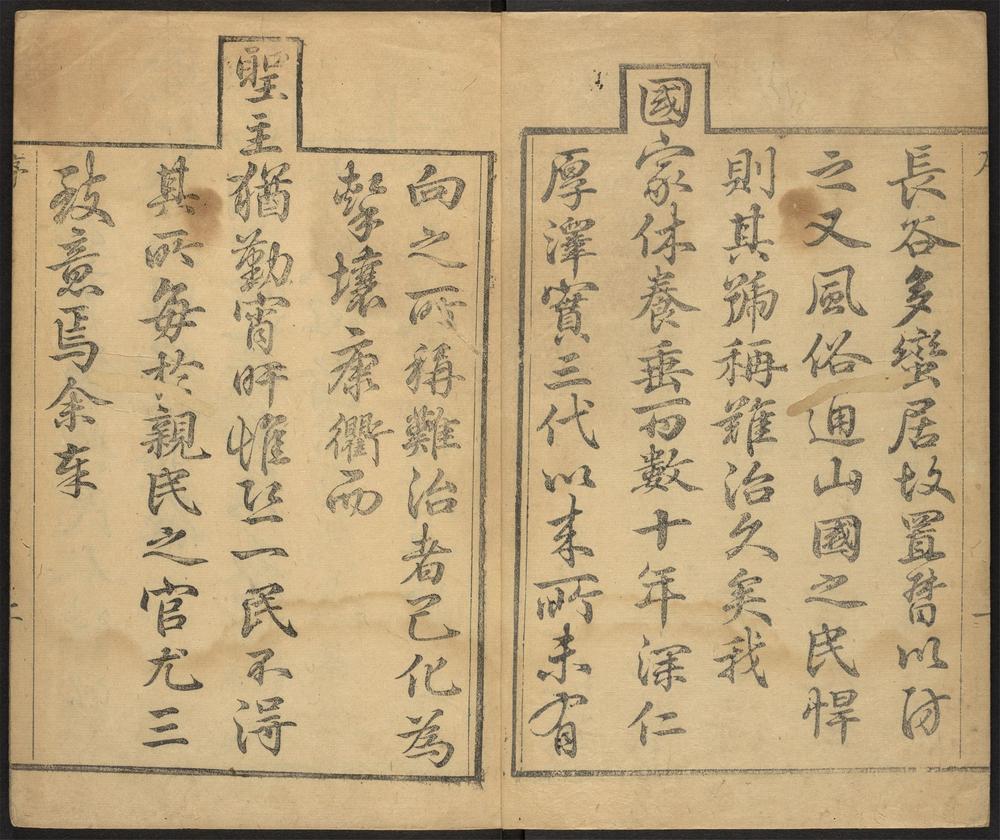 長谷多蠻居故置督以防
之又風俗通山國之民悍
則其號稱難治久矣我
國家休養垂百數十年深仁
厚澤實三代以來所未有
向之所稱難治者已化為
擊壤康衢而
聖主猶勤宵旰惟恐一民不得
其所每於親民之官尤三
致意焉余奉
序
二